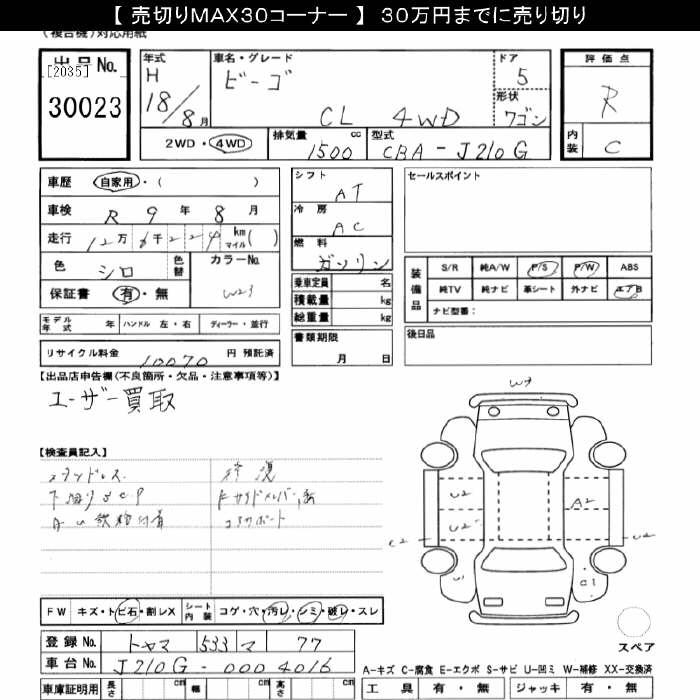 【 売切りMAX30コーナー 】 30万円までに売り切り
(複合機)対応用紙
出品No.
[2035]
30023
年式 H 18/8月
車名・グレード ビーゴ CL 4WD
ドア 5
形状 ワゴン
2WD・4WD
排気量 1500 cc
型式 CBA-J210G
評価点 R
内装 C
車歴 自家用・( )
車検 R 9 年 8 月
走行 12万 6千 2 2 4 km マイル ( )
色 シロ 色替 カラーNo. W23
保証書 有・無
モデル年式 年 ハンドル 左・右 ディーラー・並行
リサイクル料金 10070 円 預託済
シフト AT
冷房 AC
燃料 ガソリン
乗車定員 名
積載量 kg
総重量 kg
書類期限 月 日
セールスポイント
装備品 S/R 純A/W P/S P/W ABS
純TV 純ナビ 革シート 外ナビ エアB
ナビ型番:
後日品
【出品店申告欄(不良箇所・欠品・注意事項等)】
ユーザー買取
【検査員記入】
スタッドレス
下廻りSCP
修復
コアサポート
W7
U2 A2
U2
U2
W C1
FW キズ・トビ石・割レX シート内装 コゲ・穴・汚レ・シミ・破レ・スレ
登録No. トヤマ 533 マ 77
車台No. J210G-0004016
車庫証明用 長さ cm 幅 cm 高さ cm
スペア
A-キズ C-腐食 E-エクボ S-サビ U-凹ミ W-補修 XX-交換済
工具 有・無 ジャッキ 有・無